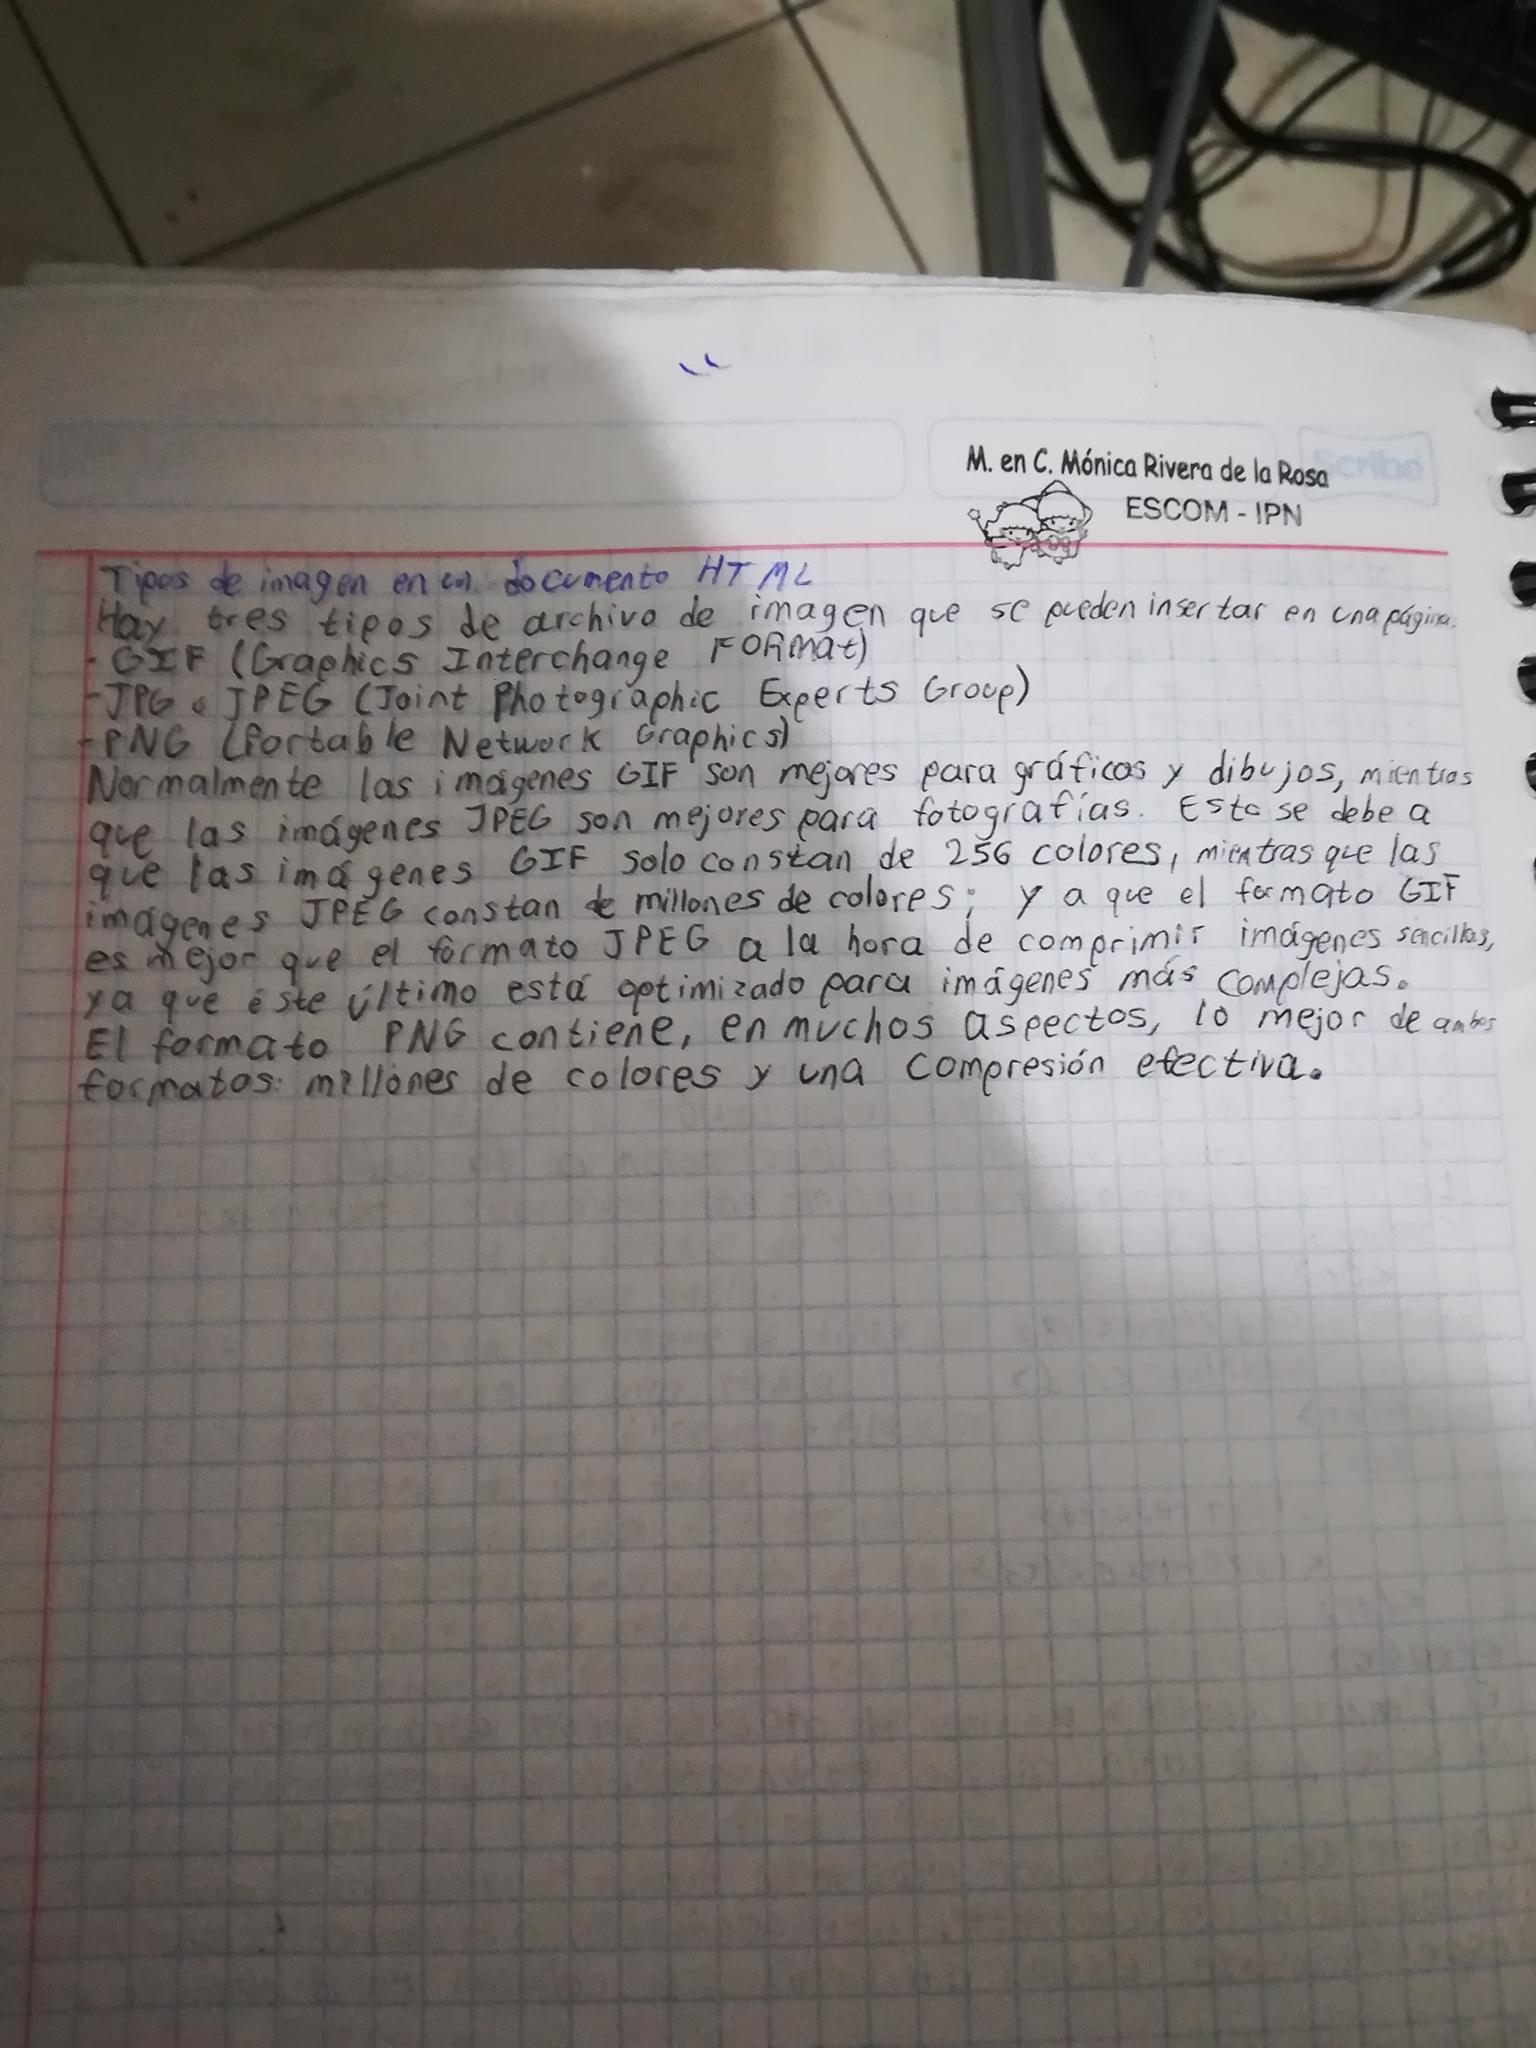 Scribe
M. en C. Mónica Rivera de la Rosa
ESCOM - IPN
Tipos de imagen en un documento HTML
Hay tres tipos de archivo de imagen que se pueden insertar en una página:
- GIF (Graphics Interchange FORMat)
- JPG o JPEG (Joint Photographic Experts Group)
- PNG (Portable Network Graphics)
Normalmente las imágenes GIF son mejores para gráficos y dibujos, mientras
que las imágenes JPEG son mejores para fotografías. Esto se debe a
que las imágenes GIF solo constan de 256 colores, mientras que las
imágenes JPEG constan de millones de colores; y a que el formato GIF
es mejor que el formato JPEG a la hora de comprimir imágenes sencillas,
ya que éste último está optimizado para imágenes más complejas.
El formato PNG contiene, en muchos aspectos, lo mejor de ambos
formatos: millones de colores y una compresión efectiva.